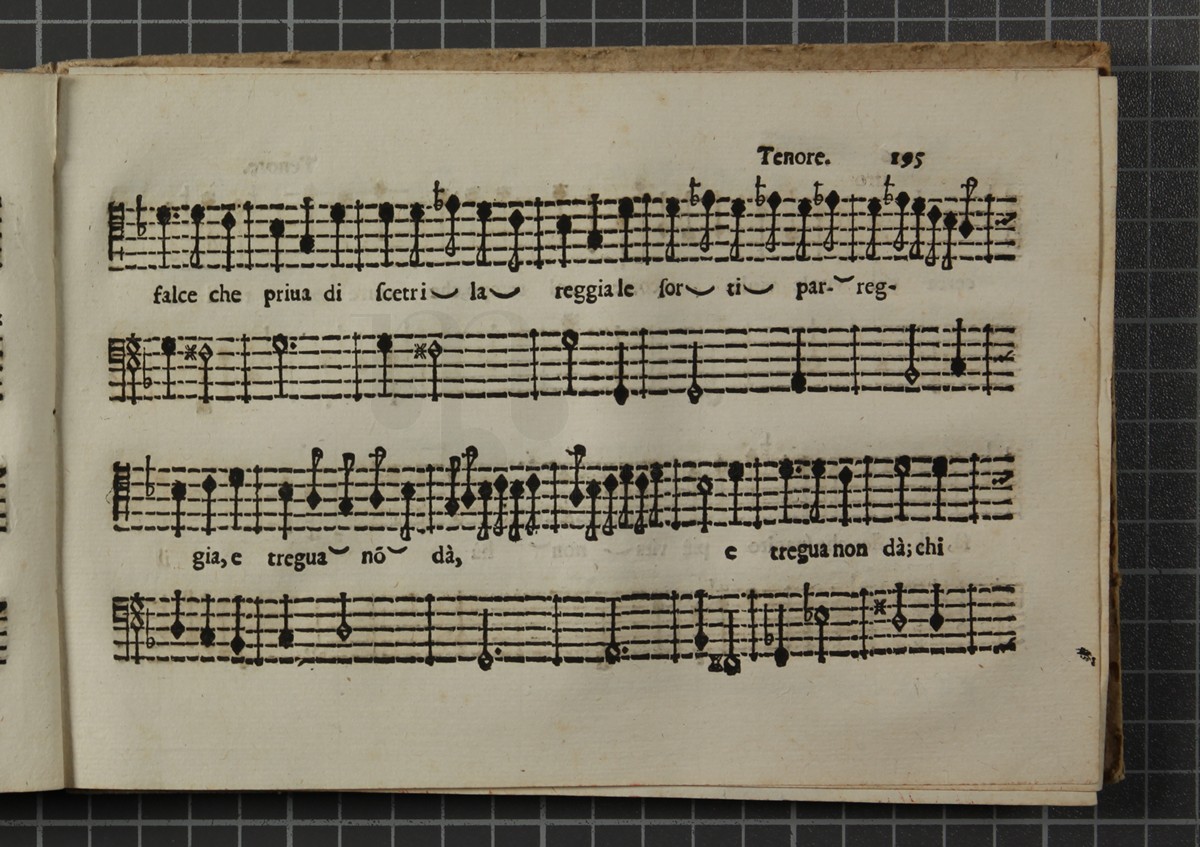 Tenore. 195
falce che priua di ſcetri la reggia le ſor ti par- reg-
gia, e tregua nō dà, e tregua non dà; chi